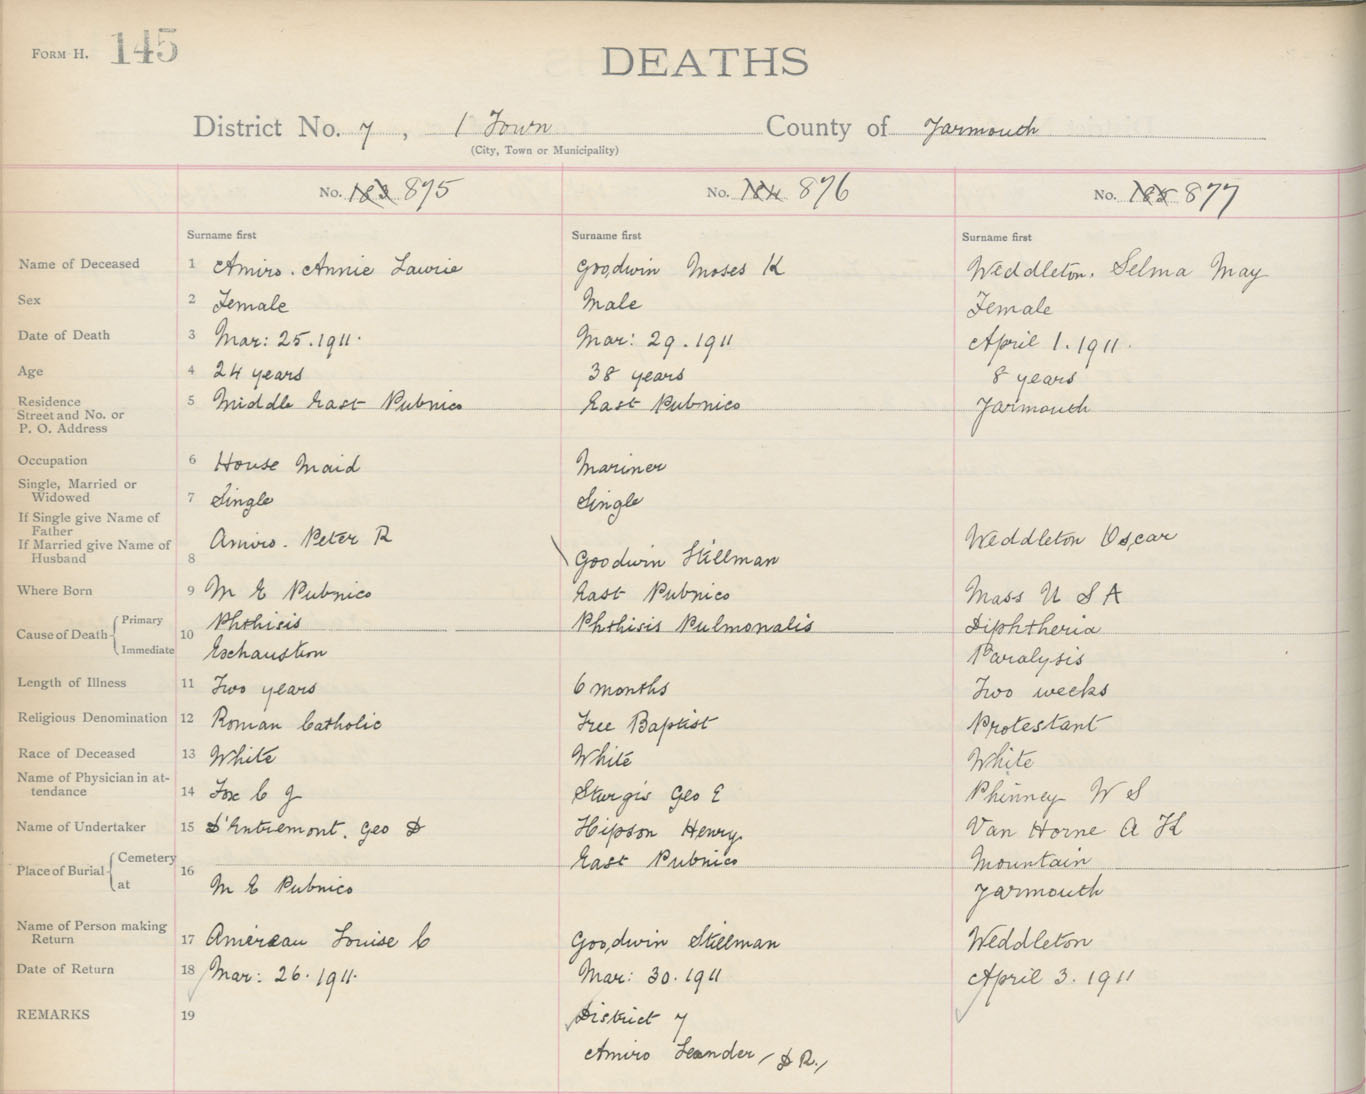 FORM H. 145
DEATHS
District No. 7, 1 Town County of Yarmouth
(City, Town or Municipality)
No. 183 875 No. 184 876 No. 185 877
Surname first Surname first Surname first
Name of Deceased 1 Amiro. Annie Laurie Goodwin Moses K Weddleton. Selma May
Sex 2 Female Male Female
Date of Death 3 Mar: 25. 1911. Mar: 29. 1911 April 1. 1911.
Age 4 24 years 38 years 8 years
Residence 5 Middle East Pubnico East Pubnico Yarmouth
Street and No. or
P. O. Address
Occupation 6 House Maid Mariner
Single, Married or
Widowed 7 Single Single
If Single give Name of
Father
Amiro. Peter R Weddleton Oscar
If Married give Name of
Husband 8 Goodwin Stillman
Where Born 9 M E Pubnico East Pubnico Mass U S A
Cause of Death Primary 10 Phthisis Phthisis Pulmonalis Diphtheria
Immediate Exhaustion Paralysis
Length of Illness 11 Two years 6 months Two weeks
Religious Denomination 12 Roman Catholic Free Baptist Protestant
Race of Deceased 13 White White White
Name of Physician in at-
tendance 14 Fox C J Sturgis Geo E Phinney W S
Name of Undertaker 15 D'Entremont. Geo D Hipson Henry Van Horne A K
Place of Burial Cemetery 16 East Pubnico Mountain
at M E Pubnico Yarmouth
Name of Person making
Return 17 Amireau Louise C Goodwin Stillman Weddleton
Date of Return 18 Mar: 26. 1911. Mar: 30. 1911 April 3. 1911
REMARKS 19 District 7
Amiro Leander, D R.,